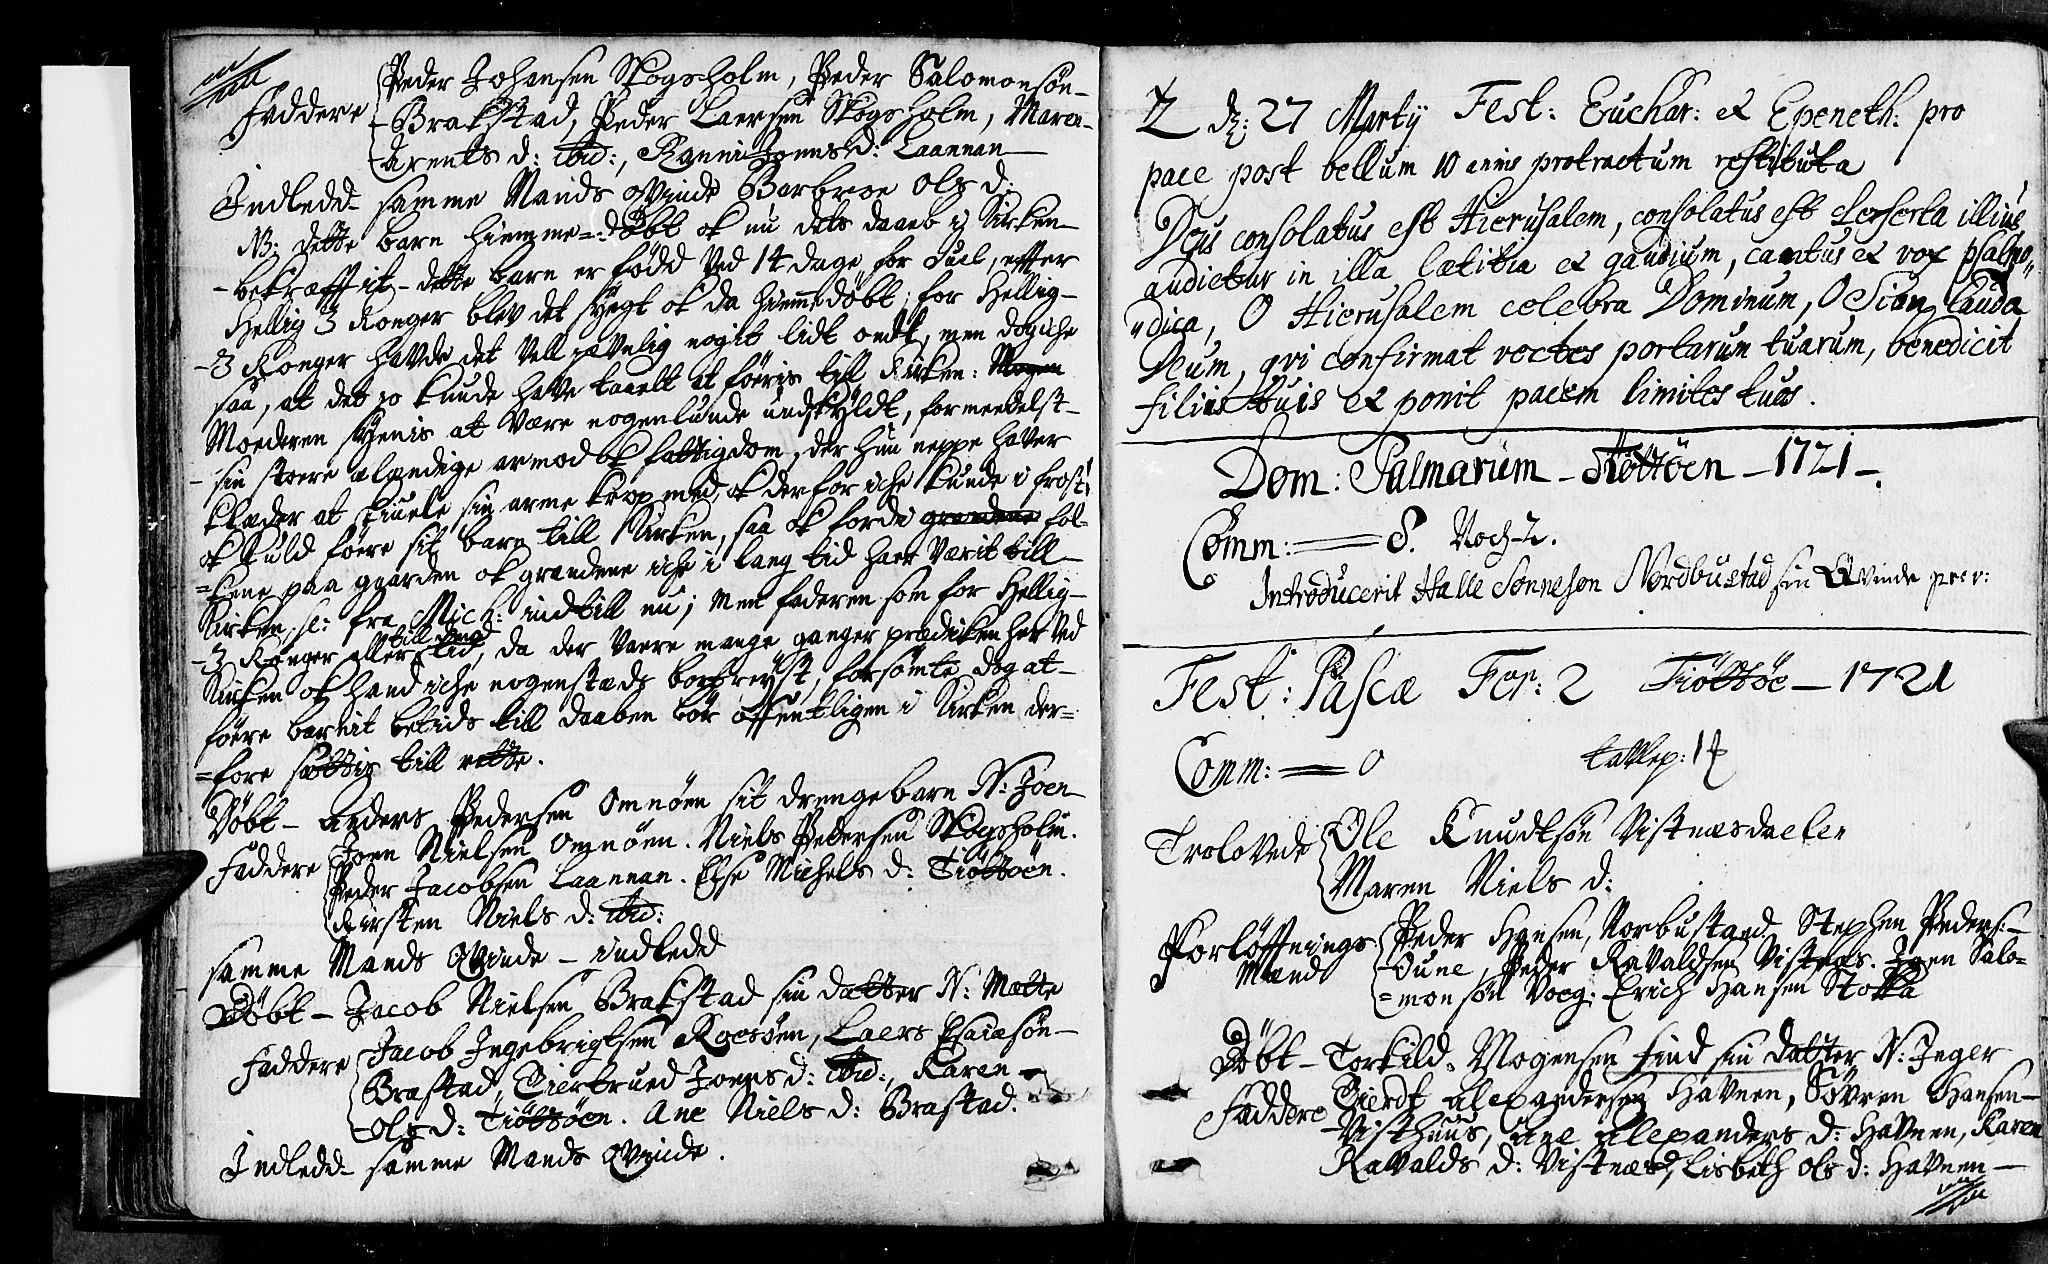 Peder Johansen Skogsholm, Peder Salomonsøn
Faddere Brakstad, Peder Laersen Skogsholm, Maren
Arents d: ibid:, Ranni Joens d: Laannan
Indledd samme Mands qvinde Barbroe Ols d:
NB: dette barn hiemme=døbt ok nu dets daab i Kirken
bekræfftit - dette barn er fødd ved 14 dage for Juel, effter
Hellig 3 Konger blev det sygt ok da hiemmedøbt; for Hellig-
3 Konger havde det vell jævnlig nogit lidt ondt, men dog iche
saa, at det jo kunde have taaelt at føeris till Kirken:
Moederen synis at være nogenlunde undskyldt, formeedelst
sin stoere elendige armod ok fattigdom, der hun neppe haver
klæder at skiuele sin arme krop med, ok derfor iche kunde i frost
ok kuld føere sit barn till Kirken, saa ok fordi fol-
=kene paa gaarden ok grændene iche i lang tid har værit till
Kirken, sc: fra Mich: indtill nu; men faderen som for Hellig-
till dend
3 Konger eller tid, da der vaere mange ganger prædiken her ved
Kirken ok hand iche nogenstæds bortreyst, forsømte dog at
føere barnit betids till daaben bør offentligen i Kirken der=
=fore sættis till rette.
Døbt - Anders Pedersen Omnøen sit drengebarn N: Joen
Faddere Joen Nielsen Omnøen. Niels Pedersen Skogsholm.
Peder Jacobsen Laannan. Else Michels d: Tiøttøen.
Kirsten Niels d: ibid:
samme Mands Qvinde - indledd
Døbt - Jacob Nielsen Brakstad sin datter N: Mætte
Faddere Jacob Ingebrigtsen Roesøen, Laers Esaiæsøn
Brastad, Giertrued Joens d: ibid:, Karen
Ols d: Tiøttøen. Ane Niels d: Brastad.
Indledd samme Mands Qvinde.
dn: 27 Martij Fest: Euchar: et Epeneth: pro
pace post bellum 10 annis protractum restituta
Deus consolatus est Hierusalem, consolatus est deserta illius
audietur in illa lætitia et gaudium, cantus et vox psalmo
dica, O Hierusalem celebra Dominum, O Sion lauda
Deum, qvi confirmat vectes portarum tuarum, benedicit
filiis tuis et ponit pacem limites tuos.
Dom: Palmarum - Tiøttøen - 1721 -
Comm: = 8. Noch 2.
Introducerit Halle Sonneson Nordbustad sin Qvinde
Fest: Pascæ Fer: 2 Tiøttøe - 1721
Comm: = 0 tavlep: 1
Trolovede Ole Knudtsøn Vistnæsdaelen
Maren Niels d:
Forløffnings Peder Hansen, Norbustaed Stephen Peders:
Mænd Oune, Peder Ravaldsen Vistnæs. Joen Salo=
=monsøn Voeg: Erich Hansen Stokka
Døbt - Torkild Mogensen find sin datter N: Inger
Faddere Gierdt Alexandersen Havnen, Søvren Hansen
Visthuus, Ane Alexanders d: Havnen, Karen
Ravalds d: Vistnæs, Lisbeth Ols d: Havnen